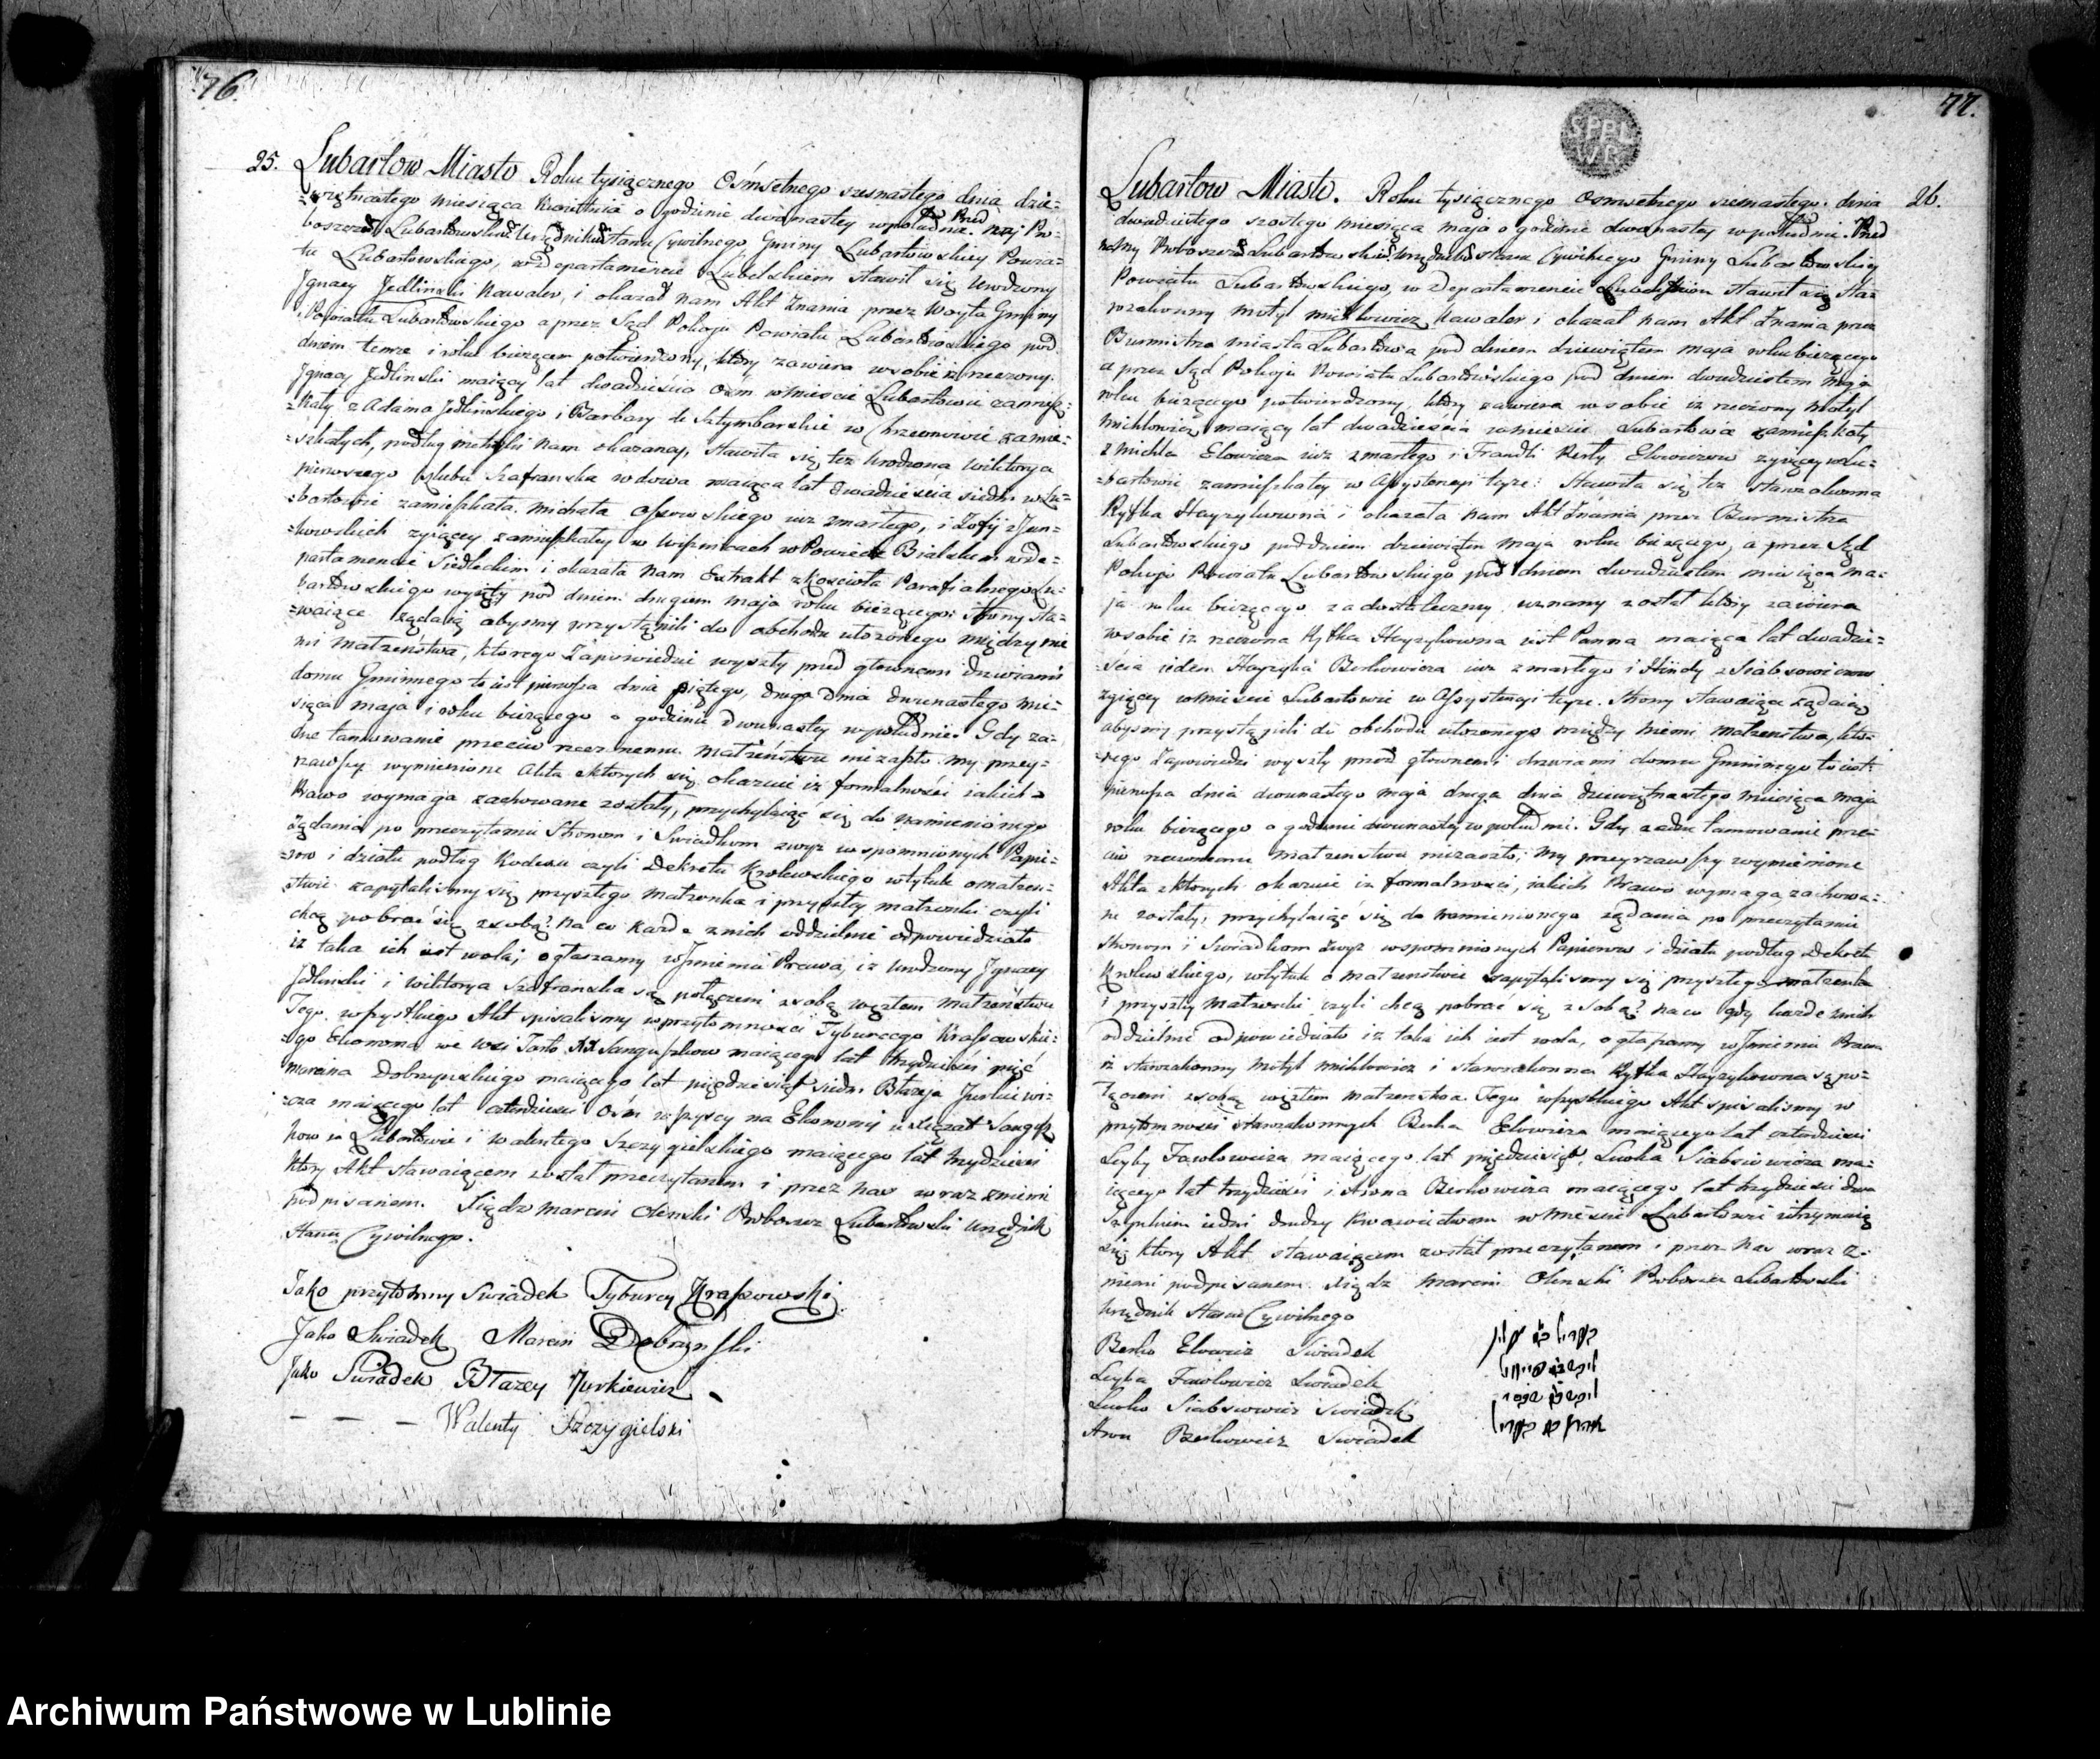 76.
25. Lubartow Miasto Roku tysiącznego Osmsetnego szesnastego dnia dzie-
-więtnastego miesiąca Kwietnia o godzinie dwunastey w południe. Przed Nami Pro-
boszczem Lubartowskim Urzędnikiem Stanu Cywilnego Gminy Lubartowskiey Powia-
tu Lubartowskiego, w Departamencie Lubelskiem stawił się Urodzony
Ignacy Jedlinski Kawaler, i okazał nam Akt Znania przez Woyta Gminy
Powiatu Lubartowskiego a przez Sąd Pokoju Powiatu Lubartowskiego pod
dniem temze i roku bieżącem potwierdzony, który zawiera w sobie iz rzeczony
Ignacy Jedlinski maiący lat dwadzieścia ośm w Mieście Lubartowie zamiesz-
-kały z Adama Jedlinskiego i Barbary de Sztymbarskie w zamie-
-szkałych, podług metryki nam okazaney, stawiła się tez Urodzona Wiktorya
pierwszego szlubu Szafranska wdowa maiąca lat dwadzieścia siedm w Lu-
-bartowie zamieszkała, Michała Ossowskiego iuz zmarłego, i Zofij z Jan-
-kowskich zyiącey zamieszkałey w Wisznicach w Powiecie Bialskim w De-
partamencie Siedleckim i okazała nam Extrakt z Kościoła Parafialnego Lu-
bartowskiego wyięty pod dniem drugiem maja roku bieżącego: Strony sta-
-waiące żądaią abyśmy przystąpili do obchodu ułożonego między nie
mi małżeństwa, którego Zapowiedzi wyszły przed głownemi drzwiami
domu Gminnego to iest pierwsza dnia piątego, druga dnia dwunastego mie-
siąca maja i roku bieżącego o godzinie dwunastey w południe. Gdy za-
dne tamowanie przeciw rzeczonemu małżeństwu nie zaszło my przey-
rzawszy wymienione Akta z których się okazuie iz formalności iakich
Prawo wymaga zachowane zostały, przychylaiąc się do namienionego
żądania po przeczytaniu Stronom i Świadkom zwyz wspomnionych Papie-
-row i działu podług Kodexu czyli Dekretu Krolewskiego w tytule o małżeń-
stwie. zapytaliśmy się przyszłego małżonka i przyszłey małżonki czyli
chcą pobrać się z sobą? na co każde z nich oddzielnie odpowiedziało
iz taka ich iest wola; ogłaszamy w Imieniu Prawa, iz Urodzony Ignacy
Jedlinski i Wiktorya Szafranska są połączeni z sobą węzłem małżeństwa
Tego wszystkiego Akt spisaliśmy w przytomności Tyburcego Kraszowskie-
-go Ekonoma we wsi Sanguszkow maiącego lat trzydzieści pięć
Marcina Dobrzynskiego maiącego lat pięćdziesiąt siedm Błażeja Jurkiewi-
-cza maiącego lat czterdzieści ośm wszyscy na Ekonomij u Xiążąt Sangusz
kow w Lubartowie i Walentego Szczygielskiego maiącego lat trzydzieści
który Akt stawaiącem został przeczytanem i przez nas wraz z niemi
podpisanem. Xiądz Marcin Olenski Proboszcz Lubartowski Urzędnik
Stanu Cywilnego.
Jako przytomny Swiadek Tyburcy Kraszowski
Jako Swiadek Marcin Dobrzynski
Jako Swiadek Błazey Jurkiewicz
— — — Walenty Szczygielski
77.
Lubartow Miasto. Roku tysiącznego Osmsetnego szesnastego dnia 26.
dwudziestego szostego miesiąca maja o godzinie dwunastey w południe. Przed
nami Proboszczem Lubartowskim Urzędnikiem stanu Cywilnego Gminy Lubartowskiey
Powiatu Lubartowskiego, w Departamencie Lubelskiem stawił się Sta-
rozakonny Motyl Michlowicz Kawaler i okazał nam Akt Znania przez
Burmistrza miasta Lubartowa pod dniem dziewiątem maja roku bieżącego
a przez Sąd Pokoju Powiatu Lubartowskiego pod dniem dwudziestem maja
roku bieżącego potwierdzony, który zawiera w sobie iz rzeczony Motyl
Michlowicz maiący lat dwadzieścia w mieście Lubartowie zamieszkały
z Michla Elowicza iuz zmarłego i Frandli Elowiczow zyiącey w Lu-
-bartowie zamieszkałey w Assystencyi teyze: Stawiła się tez Starozakonna
Ryfka Hayzykowna i okazała nam Akt Znania przez Burmistrza
Lubartowskiego pod dniem dziewiątem maja roku bieżącego, a przez Sąd
Pokoju Powiatu Lubartowskiego pod dniem dwudziestem miesiąca ma-
ja roku bieżącego za dostateczny uznany został który zawiera
w sobie iz rzeczona Ryfka Hayzykowna iest Panna maiąca lat dwadzie-
ścia ieden Hayzyka Berkowicza iuz zmarłego i Hindy z Siabsowiczow
zyiącey w Mieście Lubartowie w Assystencyi teyze. Strony stawaiące żądaią
abyśmy przystąpili do obchodu ułożonego między niemi małżeństwa, kto-
-rego Zapowiedzi wyszły przed głownemi drzwiami domu Gminnego to iest
pierwsza dnia dwunastego maja druga dnia dziewiętnastego miesiąca maja
roku bieżącego o godzinie dwunastey w południe. Gdy zadne tamowanie prze-
ciw rzeczonemu małżeństwu nie zaszło; my przeyrzawszy wymienione
Akta z których okazuie iz formalności, iakich Prawo wymaga zachowa-
ne zostały, przychylaiąc się do namienionego żądania po przeczytaniu
stronom i Swiadkom zwyz wspomnionych Papierow i działu podług Dekretu
Krolewskiego, w tytule o małżenstwie zapytaliśmy się przyszłego małzonka
i przyszłey małżonki czyli chcą pobrać się z sobą? na co gdy każde z nich
oddzielnie odpowiedziało iz taka ich iest wola, ogłaszamy w Imieniu Prawa
iz starozakonny Motyl Michlowicz i starozakonna Ryfka Hayzykowna są po-
łączeni z sobą węzłem małżeństwa. Tego wszystkiego Akt spisaliśmy w
przytomności starozakonnych Berka Elowicza maiącego lat czterdzieści
Leyby Jawlowicza maiącego lat pięćdziesiąt, Lewka Siabsiowicza ma-
iącego lat trzydzieści i Arona Berkowicza maiącego lat trzydzieści dwa
iedni drudzy krawiectwem w Mieście Lubartowie utrzymuią
się który Akt stawaiącem został przeczytanem i przez nas wraz z-
niemi podpisanem. Xiądz Marcin Olenski Proboszcz Lubartowski
Urzędnik Stanu Cywilnego
Berko Elowicz Swiadek
Leyba Jawlowicz Swiadek
Lewko Siabsiowicz Swiadek
Aron Berkowicz Swiadek
Archiwum Państwowe w Lublinie